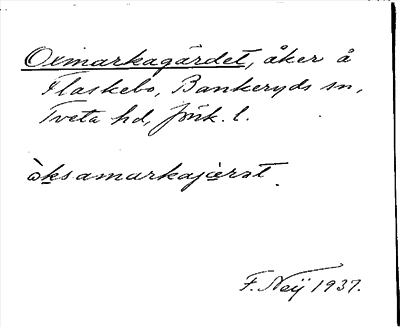 Oxmarkagärdet, åker å
Flaskebo, Bankeryds sn,
Tveta hd, Jönk. l.
òksamarkajærat.
F. Neij 1937.